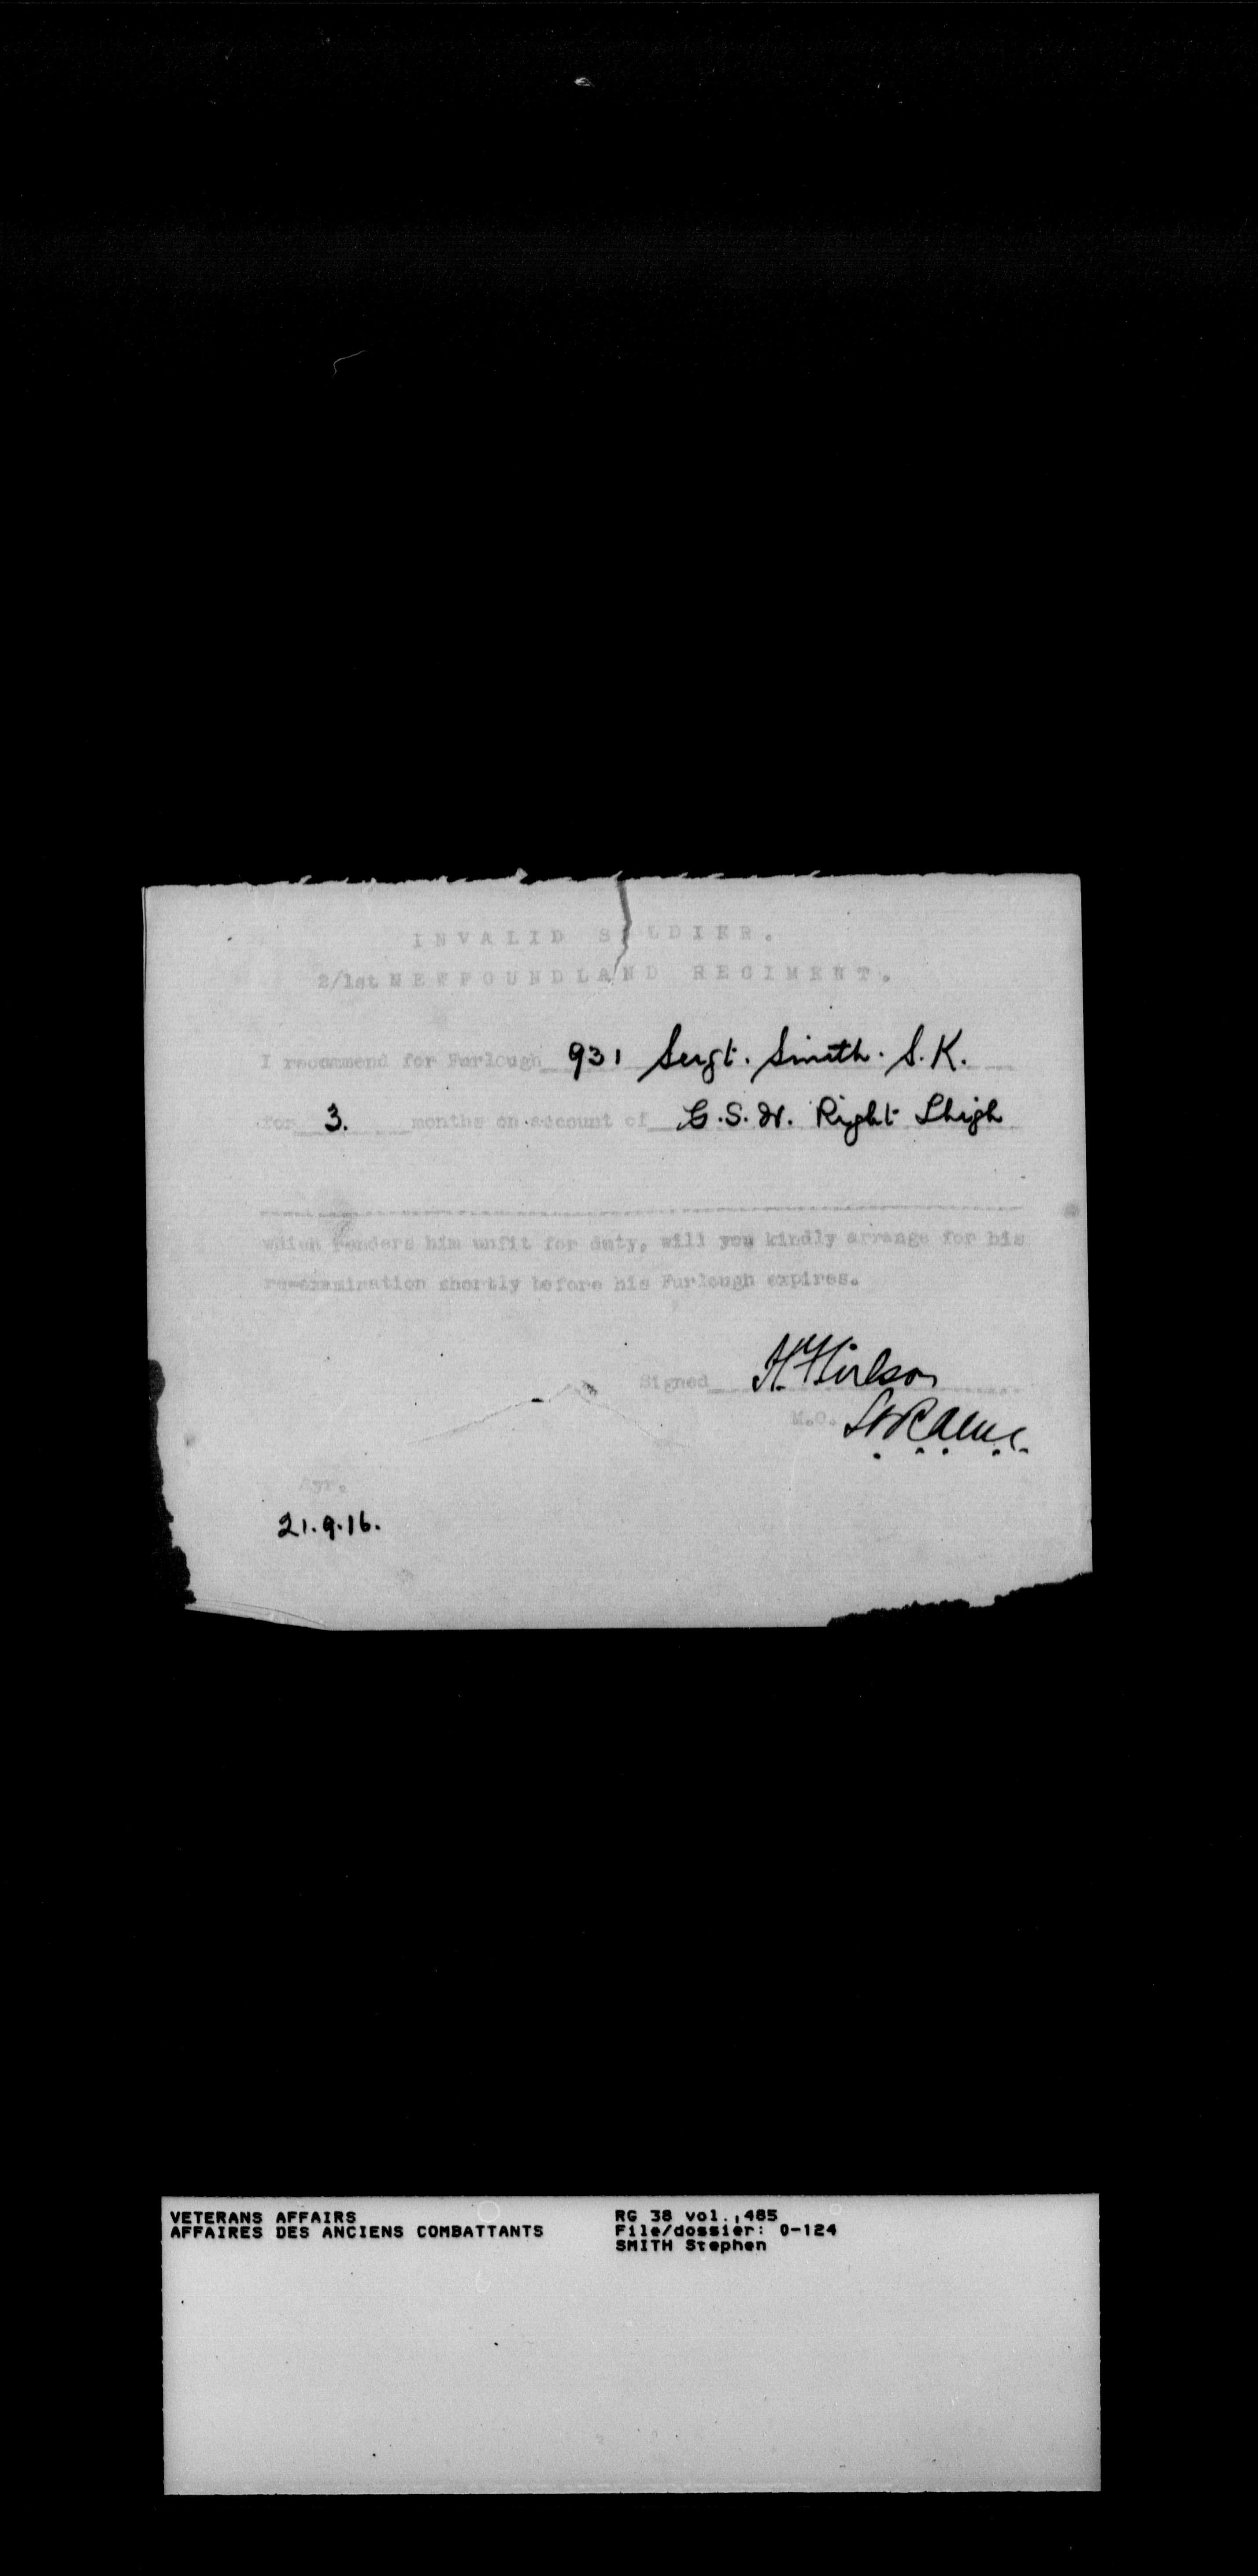 INVALID SOLDIER.
2/1st NEWFOUNDLAND REGIMENT.
I recommend for Furlough 931 Sergt. Smith. S. K.
for 3. months on account of G.S.W. Right Thigh
which renders him unfit for duty, will you kindly arrange for his
re-examination shortly before his Furlough expires.
Signed
M.O.
Ayr.
21.9.16.
VETERANS AFFAIRS
AFFAIRES DES ANCIENS COMBATTANTS
RG 38 vol. 485
File/dossier: 0-124
SMITH Stephen